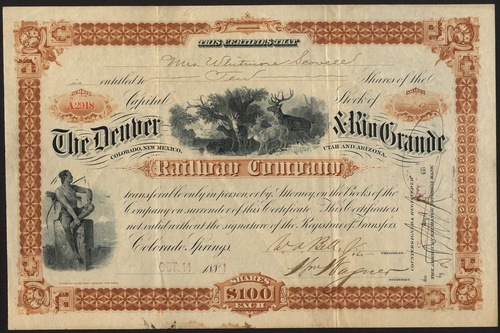 THIS CERTIFIES THAT
Mrs. Whitmore
is entitled to Ten Shares of the
A2918 Capital Stock of
The Denver & Rio Grande
COLORADO, NEW MEXICO, UTAH AND ARIZONA.
Railway Company
transferable only in person, or by Attorney, on the Books of the
Company on surrender of this Certificate. This Certificate is
not valid without the signature of the Registrar of Transfers
Colorado Springs,
OCT 11 1881
PRESIDENT.
Wm Wagner
SHARES
$100
EACH